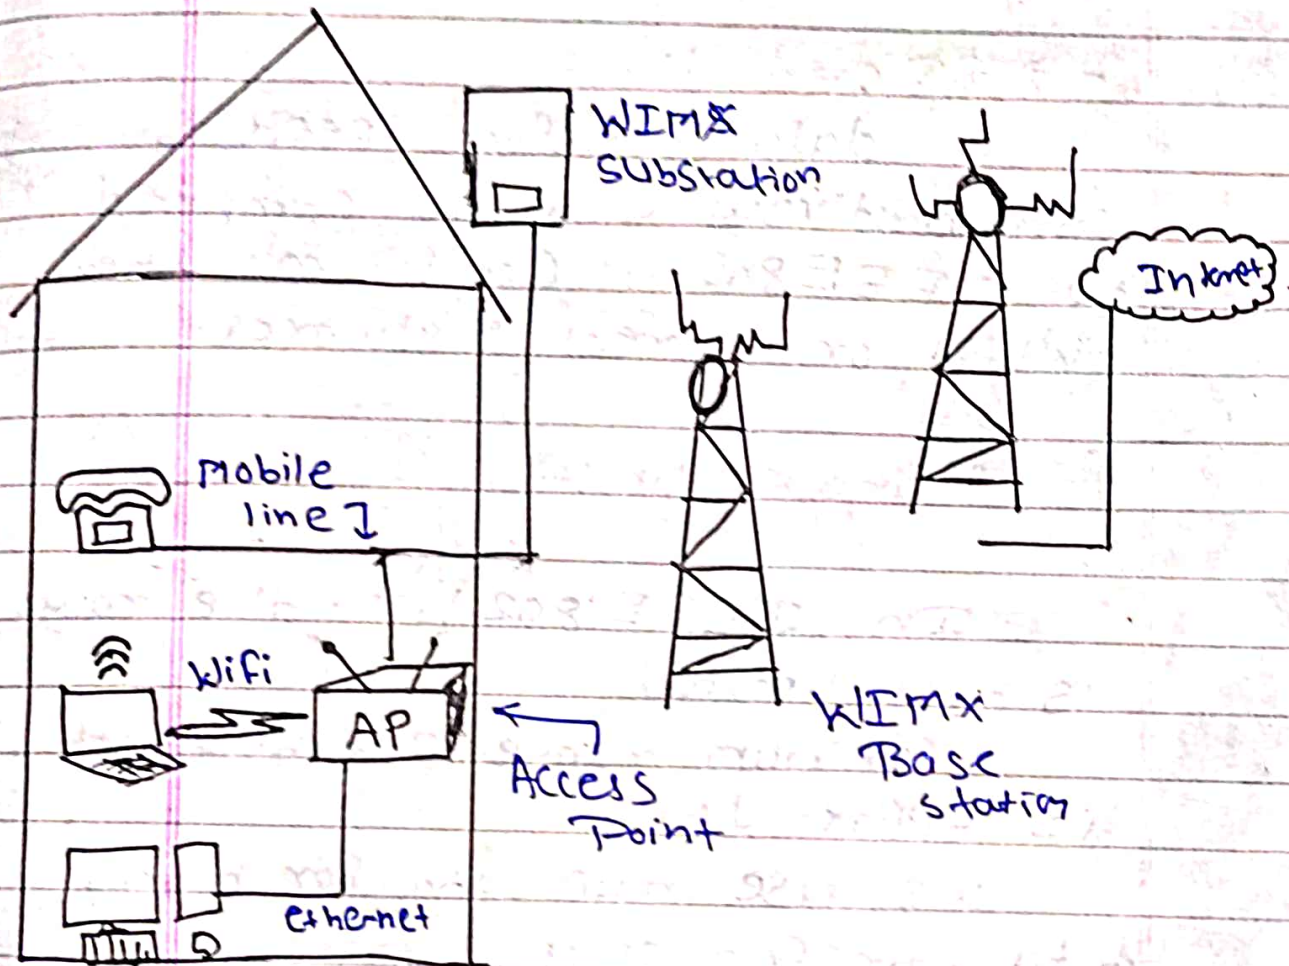 WIMX
Substation
Internet
Mobile
line
Wifi
AP
Access
Point
WIMX
Base
station
ethernet